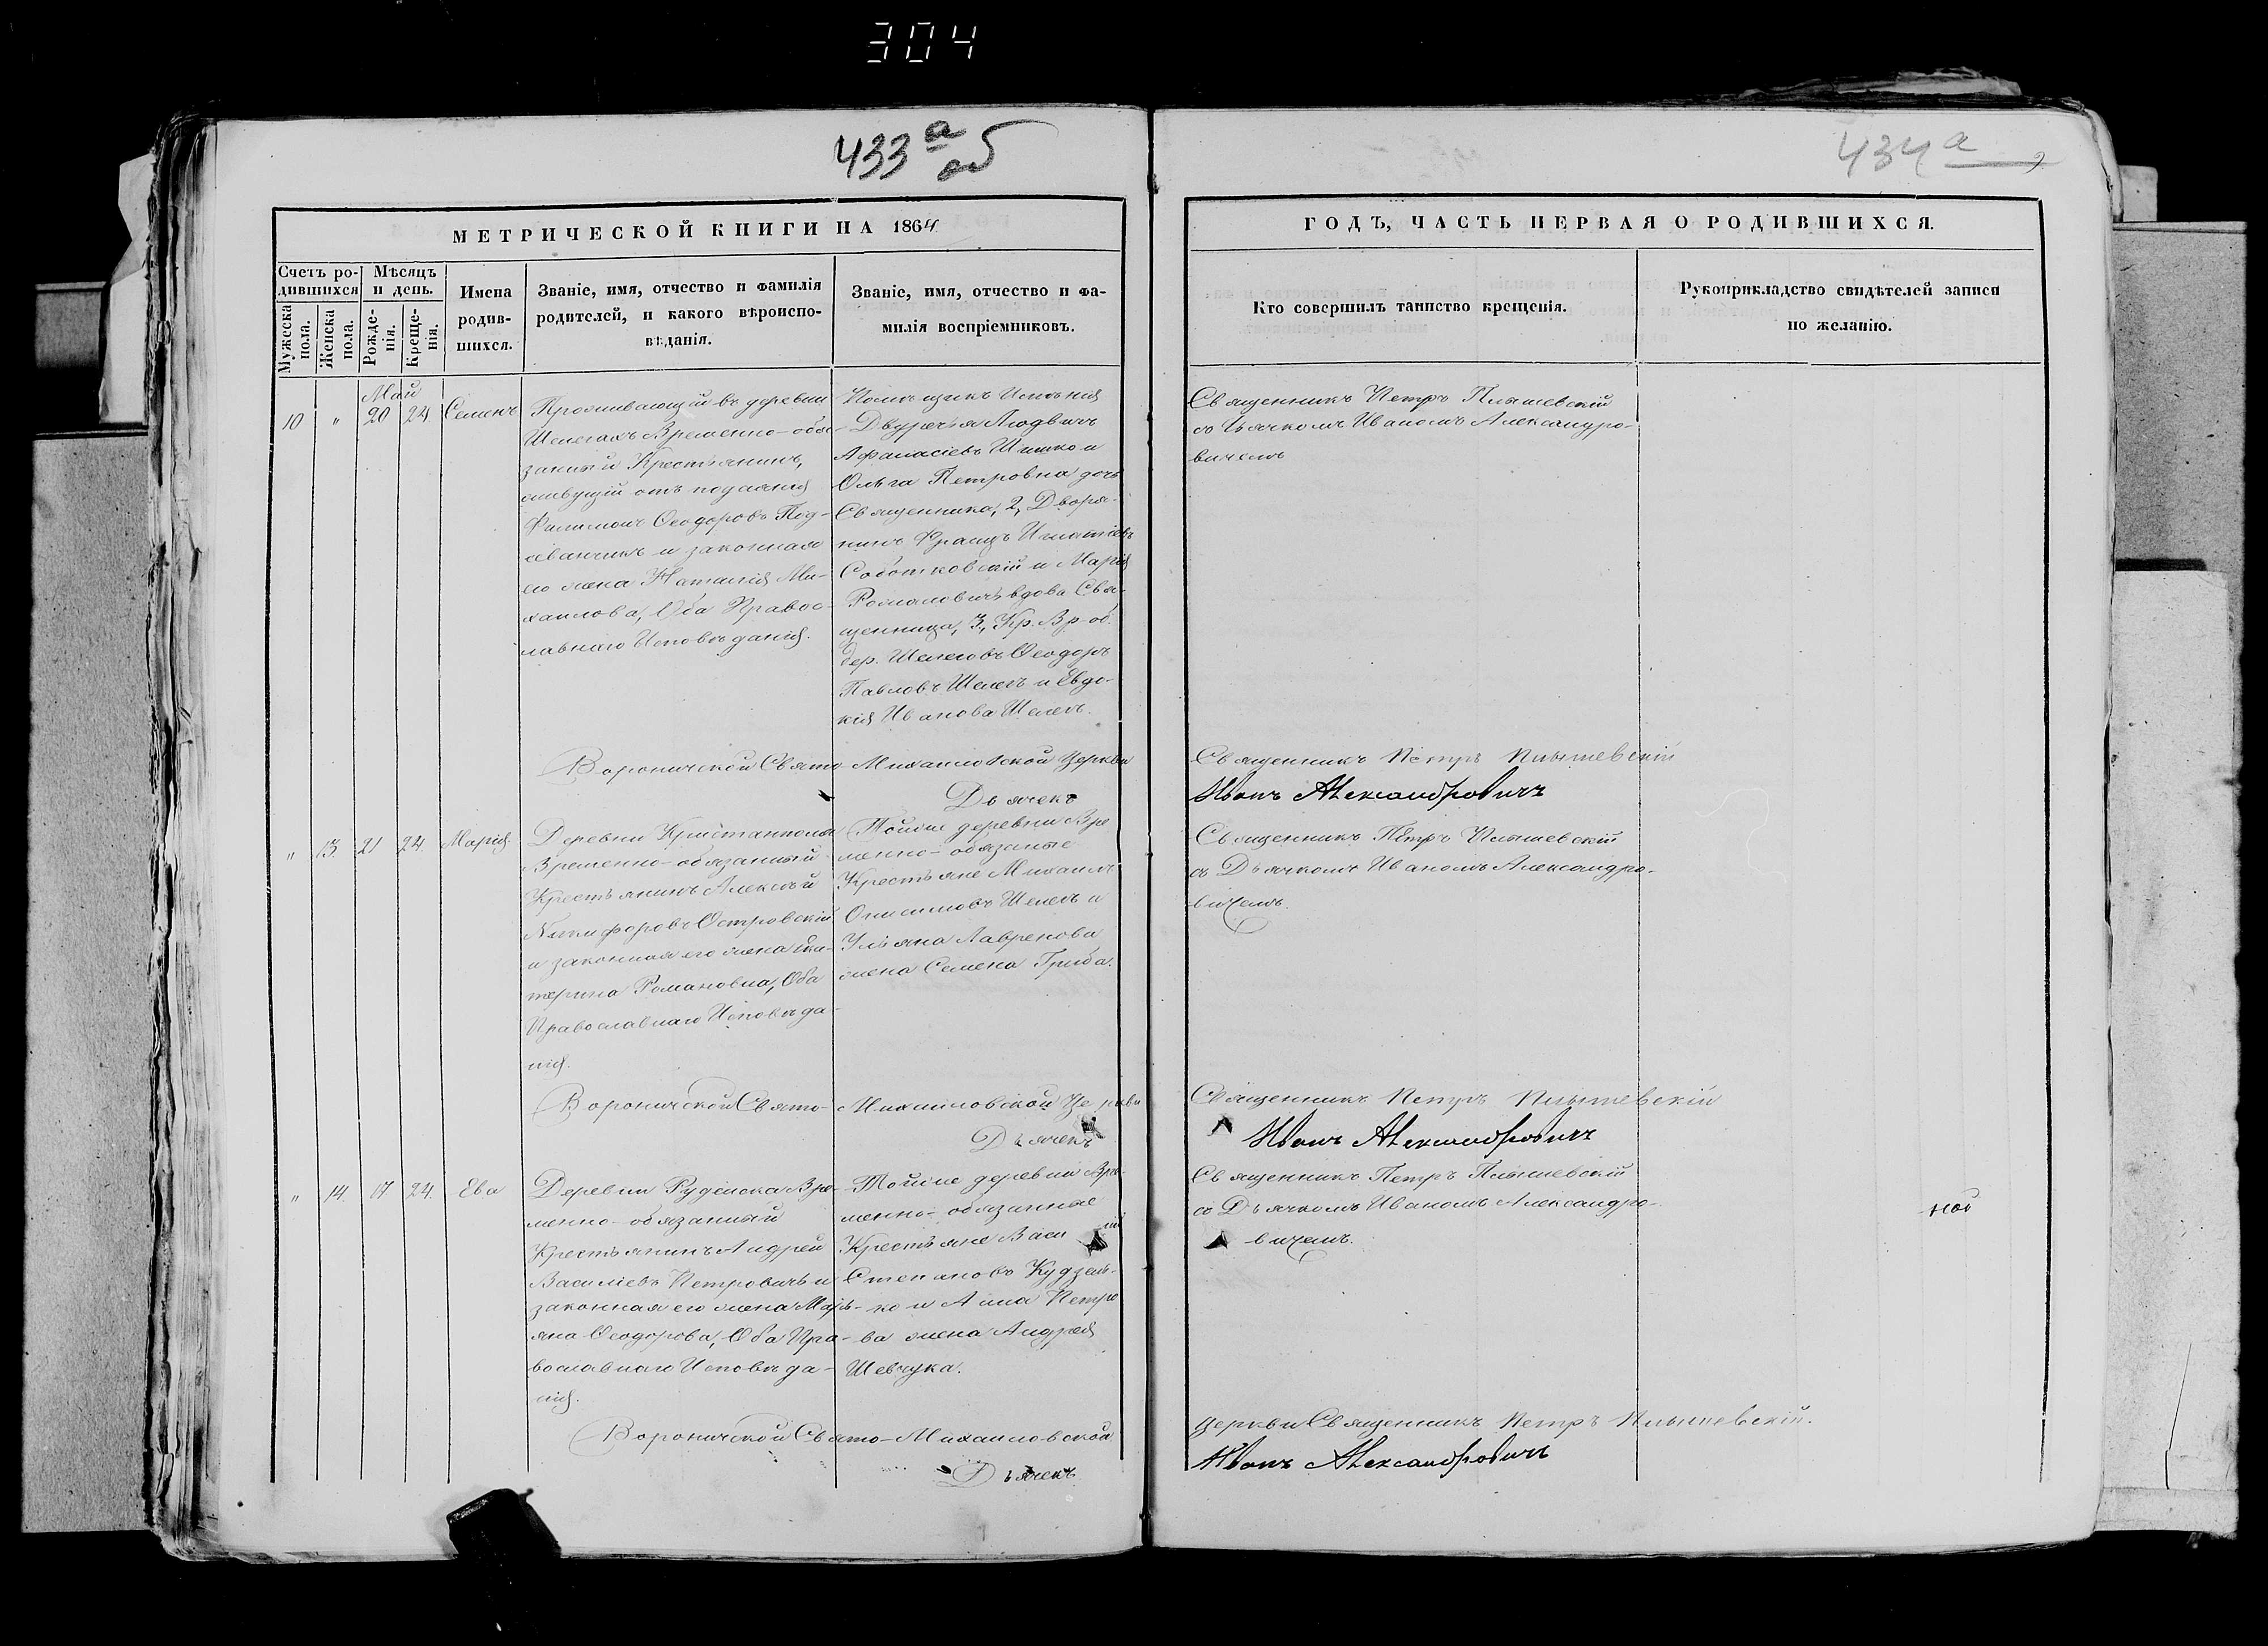 304
433 а об
434 а
МЕТРИЧЕСКОЙ КНИГИ НА 1864
Счетъ ро-
дившихся
Мужеска пола.
Женска пола.
Мѣсяцъ и день.
Рожде-
нія.
Креще-
нія.
Имена
родив-
шихся.
Званіе, имя, отчество и фамилія
родителей, и какого вѣроиспо-
вѣданія.
Званіе, имя, отчество и фа-
милія воспріемниковъ.
ГОДЪ, ЧАСТЬ ПЕРВАЯ О РОДИВШИХСЯ.
Кто совершилъ таинство крещенія.
Рукоприкладство свидѣтелей записи
по желанію.
Май
10 " 20 24 Семенъ
Проживающій въ деревни
Шелегахъ Временно-обя-
занный Крестьянинъ,
живущій отъ подаянія
Филимонъ Ѳеодоровъ
и законная
его жена Наталія Ми-
хаилова, Оба Правос-
лавнаго Исповѣданія.
Помѣщикъ Имѣнія
Двуречья Людвигъ
Афанасіевъ Шишко и
Ольга Петровна дочь
Священника, 2, Дворя-
нинъ Францъ Игнатіевъ
Соботковскій и Марія
Романовичъ вдова Свя-
щенница, 3, Кр. Вр-об.
дер. Шелеговъ Ѳеодоръ
Павловъ Шелегъ и Евдо-
кія Иванова Шелегъ.
Священникъ Петръ
со Дьячкомъ Иваномъ Александро-
вичемъ
Вороничской Свято-Михаиловской Церкви
Священникъ Петръ
Дьячекъ
Иванъ Александровичъ
" 13. 21 24. Марія
Деревни
Временно-обязанный
Крестьянинъ Алексѣй
Никифоровъ Островскій
и законная его жена Ека-
терина Романовна, Оба
Православнаго Исповѣда-
нія.
Тойже деревни Вре
менно-обязаные
Крестьяне Михаилъ
Онисимовъ Шелегъ и
Ульяна Лавренова
жена Семена Гриба.
Священникъ Петръ
съ Дьячкомъ Иваномъ Александро-
вичемъ.
Вороничской Свято-Михаиловской Церкви
Священникъ Петръ
Дьячекъ
Иванъ Александровичъ
" 14. 17 24. Ева
Деревни Рудейска Вре-
менно-обязанный
Крестьянинъ Андрей
Василіевъ Петровичъ и
законная его жена Марь-
яна Ѳеодорова, Оба Пра-
вославнаго Исповѣда-
нія.
Тойже деревни Вре-
менно-обязанные
Крестьяне Васи ій
Степановъ Кудзель-
ко и Анна Петро
ва жена Андрея
Шевчука.
Священникъ Петръ
со Дьячкомъ Иваномъ Александро-
вичемъ.
Вороничской Свято-Михаиловской
Церкви Священникъ Петръ
Дьячекъ
Иванъ Александровичъ